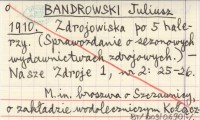 BANDROWSKI Juliusz
1910. Zdrojowiska po 5 hale-
rzy. (Sprawozdanie o sezonowych
wydawnictwach zdrojowych.)
Nasze Zdroje 1, nr 2: 25-26.
M. in. broszura o Szczawnicy,
o zakładzie wodoleczniczym Kołącz-